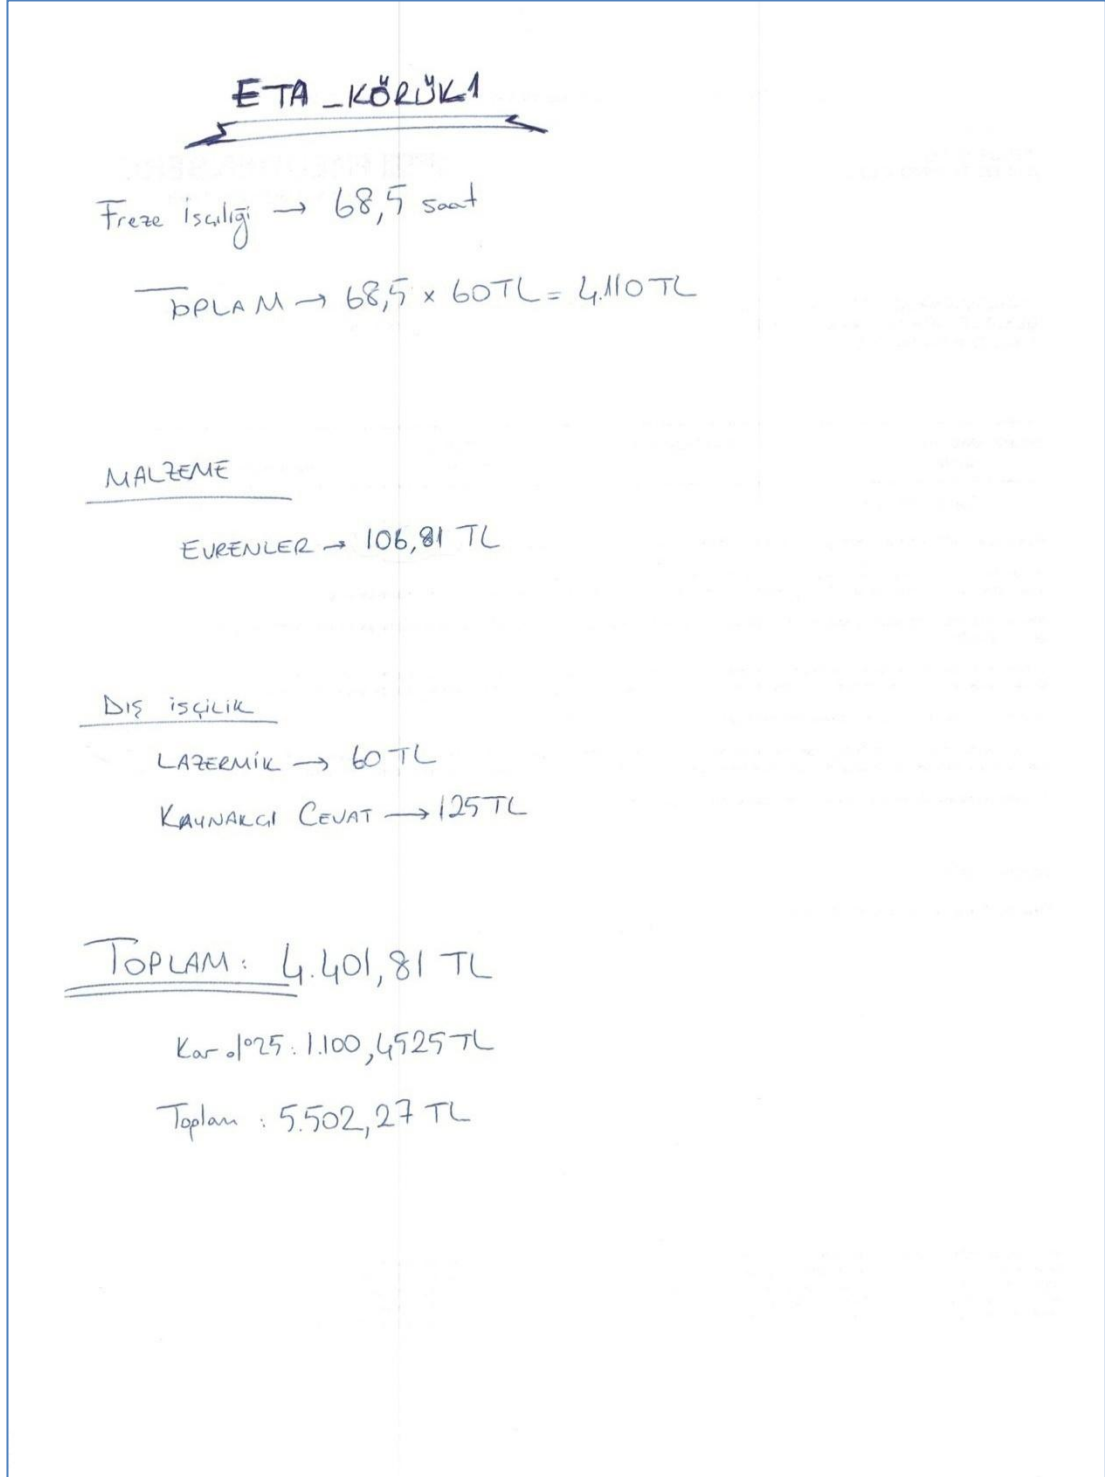 ETA_KÖRÜK1
Freze İşçiliği → 68,5 saat
TOPLAM → 68,5 x 60TL = 4.110 TL
MALZEME
EVRENLER → 106,81 TL
DIŞ işçilik
LAZERMİK → 60 TL
KAYNAKÇI CEVAT → 125 TL
TOPLAM: 4.401,81 TL
Kar %25: 1.100,4525 TL
Toplam : 5.502,27 TL